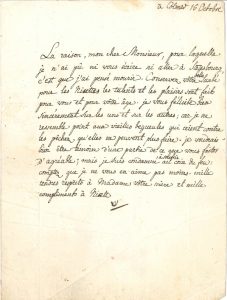 à Colmar 16 Octobre
La raison, mon cher Monsieur, pour laquelle
je n'ai pû ni vous écrire ni aller à Strasbourg
c'est que j'ai pensé mourir. Conservez votre santé
pour les les talents et les plaisirs sont fait
pour vous et pour votre âge. je vous félicite bien
sincerement sur les uns et sur les autres, car je ne
ressemble point aux vieilles begueules qui crient contre
les péchés, qu'elles ne peuvent plus faire. je voudrais
bien être témoin d'une partie de ce que vous faites
d'agréable; mais je suis condamné au coin du feu
comptez que je ne vous en aime pas moins. mille
tendres regrets à Madame votre mère et mille
compliments à